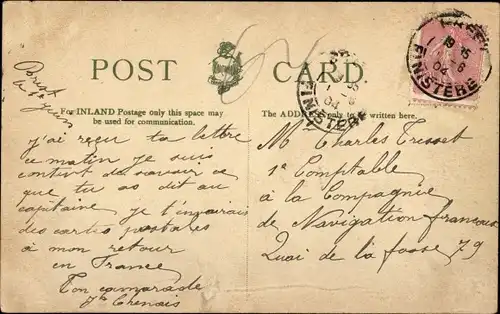 POST CARD.
Brest
le 1er Juin
For INLAND Postage only this space may
be used for communication.
The ADDRESS only to be written here.
BREST
19 15
1 - 6
04
FINISTÈRE
FINISTÈRE
J'ai reçu ta lettre
ce matin je suis
content de savoir ce
que tu as dit au
capitaine je t'enverais
des cartes postales
à mon retour
en France
Ton camarade
M Charles Tresset
1e Comptable
à la Compagnie
de Navigation francaise
Quai de la fosse 79